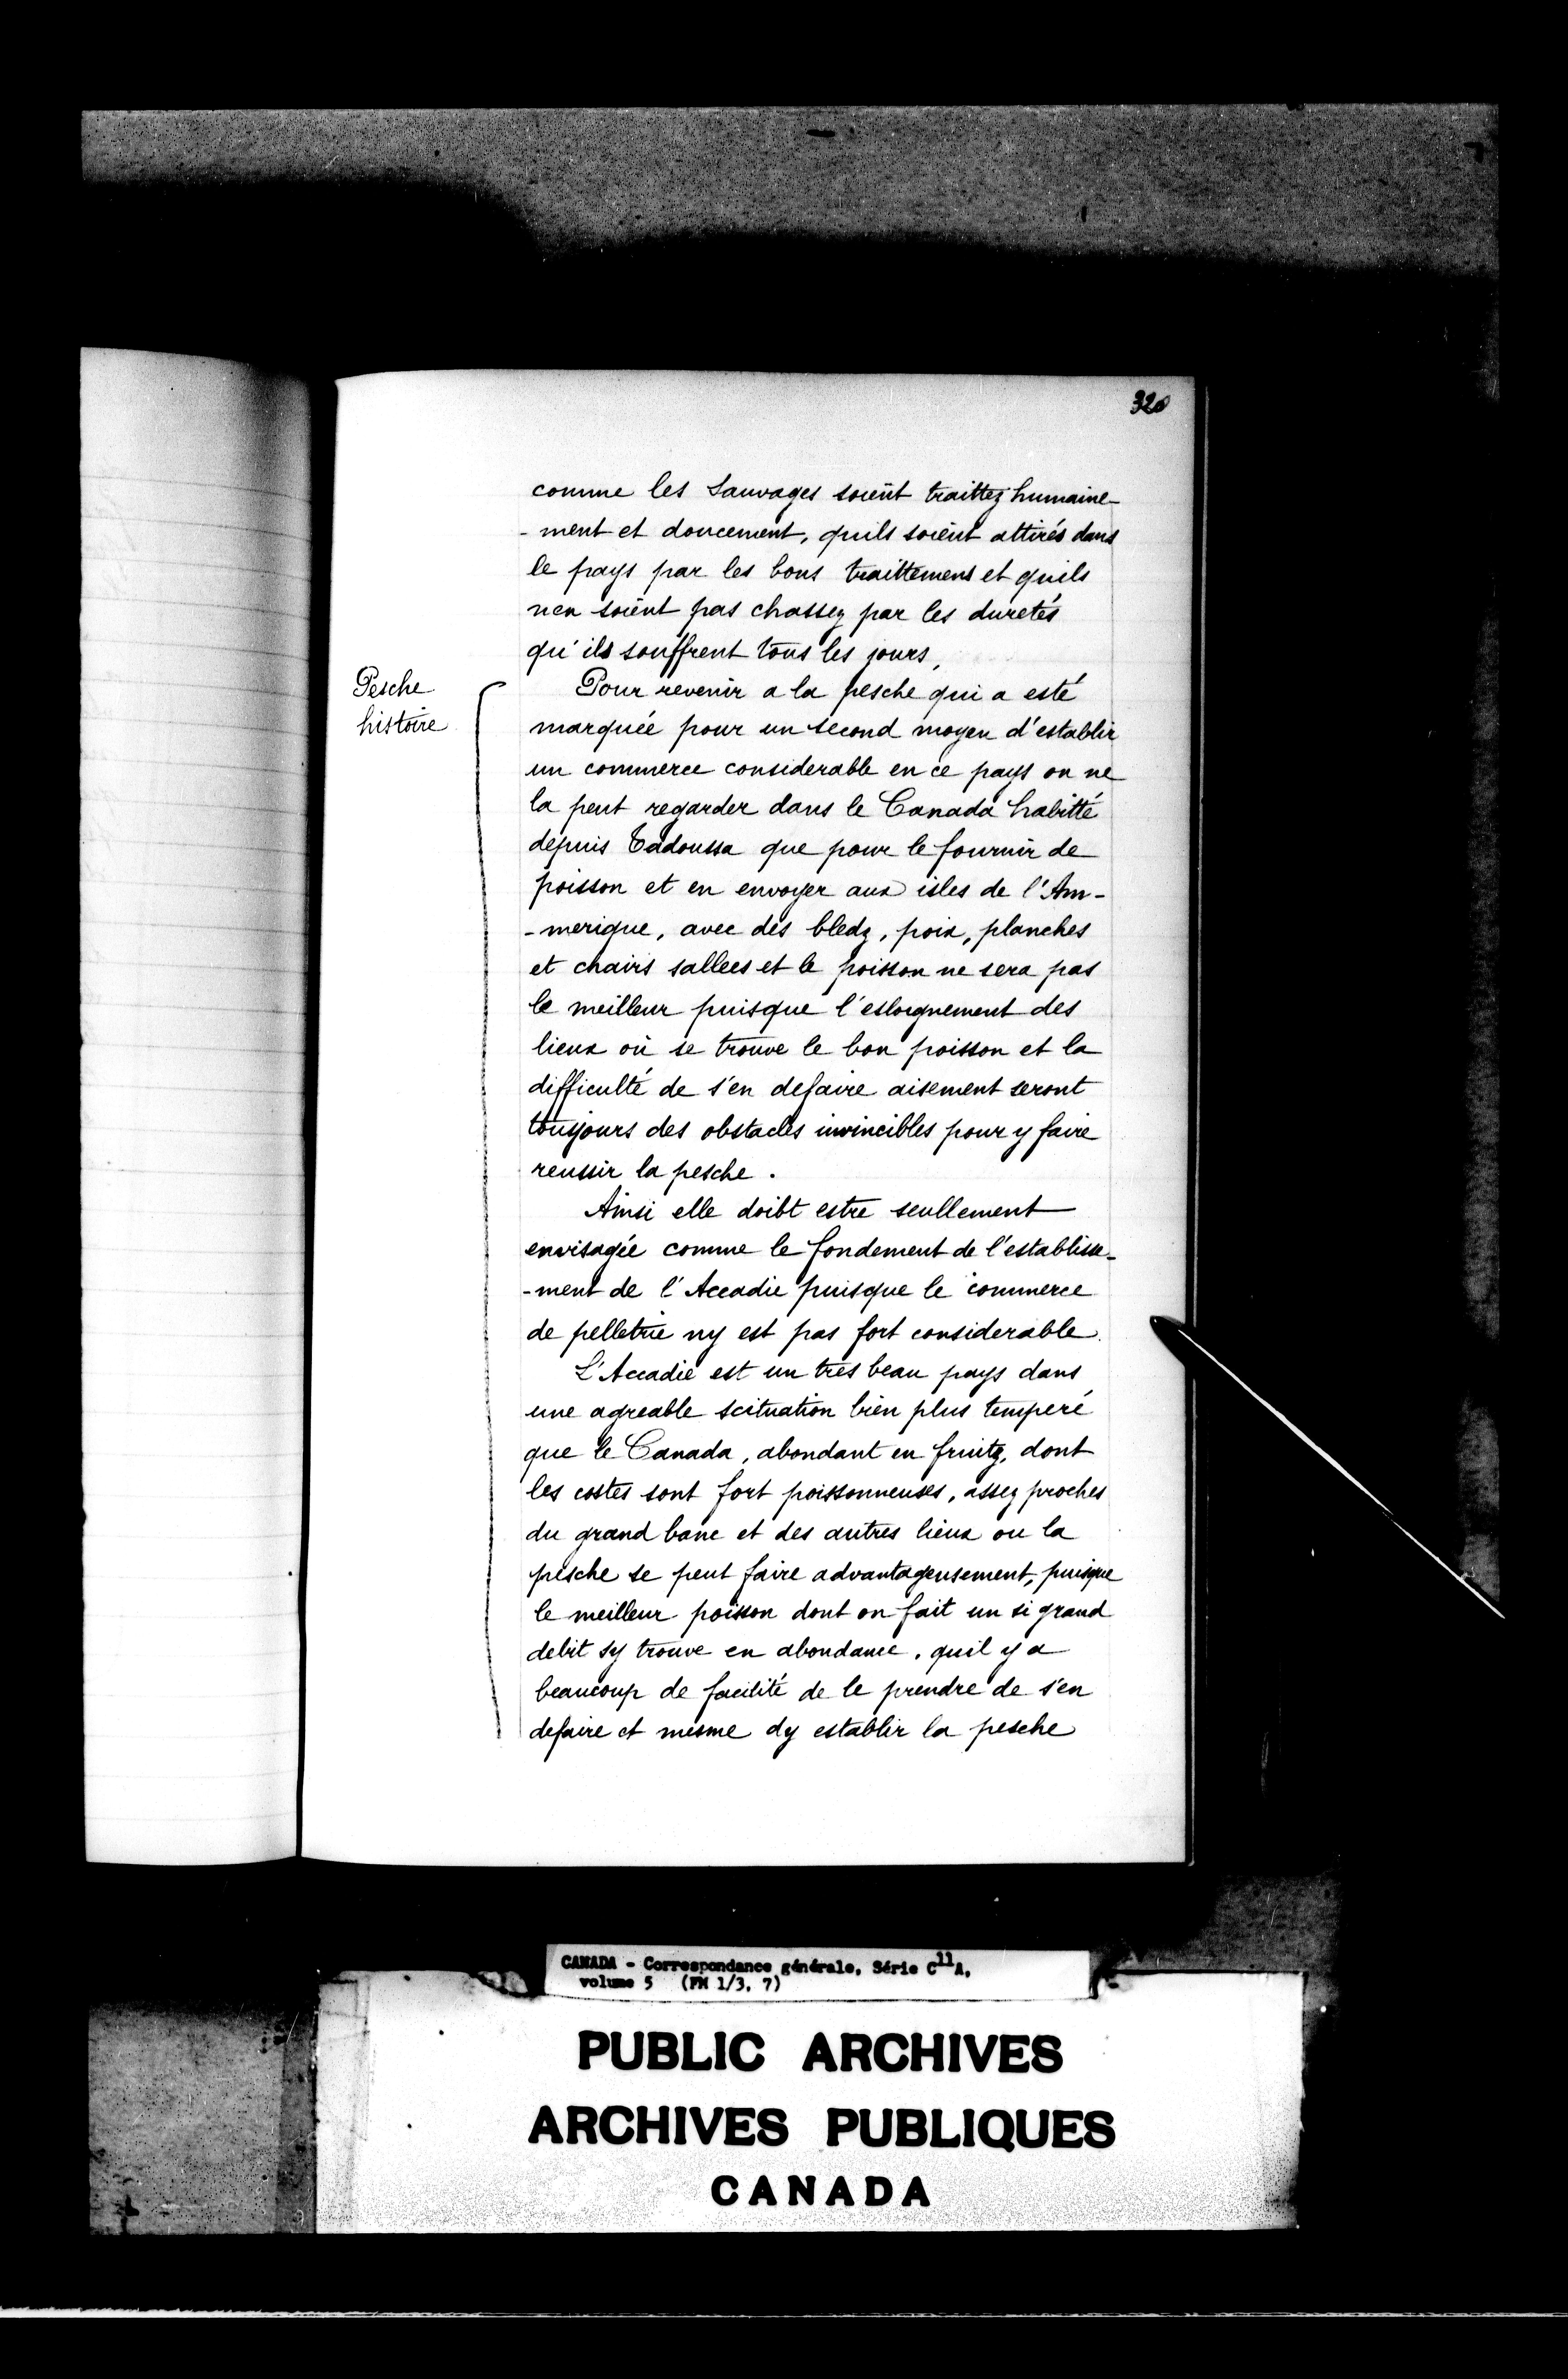 320
comme les Sauvages soient traittez humaine-
-ment et doucement, quils soient attirés dans
le pays par les bons traittemens et quils
nen soient pas chassez par les duretés
qu'ils souffrent tous les jours,
Pesche
histoire
Pour revenir a la pesche qui a esté
marquée pour un second moyen d'establir
un commerce considerable en ce pays on ne
la peut regarder dans le Canada habitté
depuis Tadoussa que pour le fournir de
poisson et en envoyer aux isles de l'Am-
-merique, avec des bledz, poix, planches
et chairs sallees et le poisson ne sera pas
le meilleur puisque l'esloignement des
lieux où se trouve le bon poisson et la
difficulté de s'en defaire aisement seront
tousjours des obstacles invincibles pour y faire
reussir la pesche.
Ainsi elle doibt estre seullement
envisagée comme le fondement de l'establisse-
-ment de l'Accadie puisque le commerce
de pelletrie ny est pas fort considerable.
L'Accadie est un tres beau pays dans
une agreable scituation bien plus temperé
que le Canada, abondant en fruitz, dont
les costes sont fort poissonneuses, assez proches
du grand banc et des autres lieux ou la
pesche se peut faire advantageusement, puisque
le meilleur poisson dont on fait un si grand
debit sy trouve en abondance, quil y a
beaucoup de facilité de le prendre de s'en
defaire et mesme dy establir la pesche
CANADA - Correspondance générale, Série C11A,
volume 5 (FM 1/3, 7)
PUBLIC ARCHIVES
ARCHIVES PUBLIQUES
CANADA